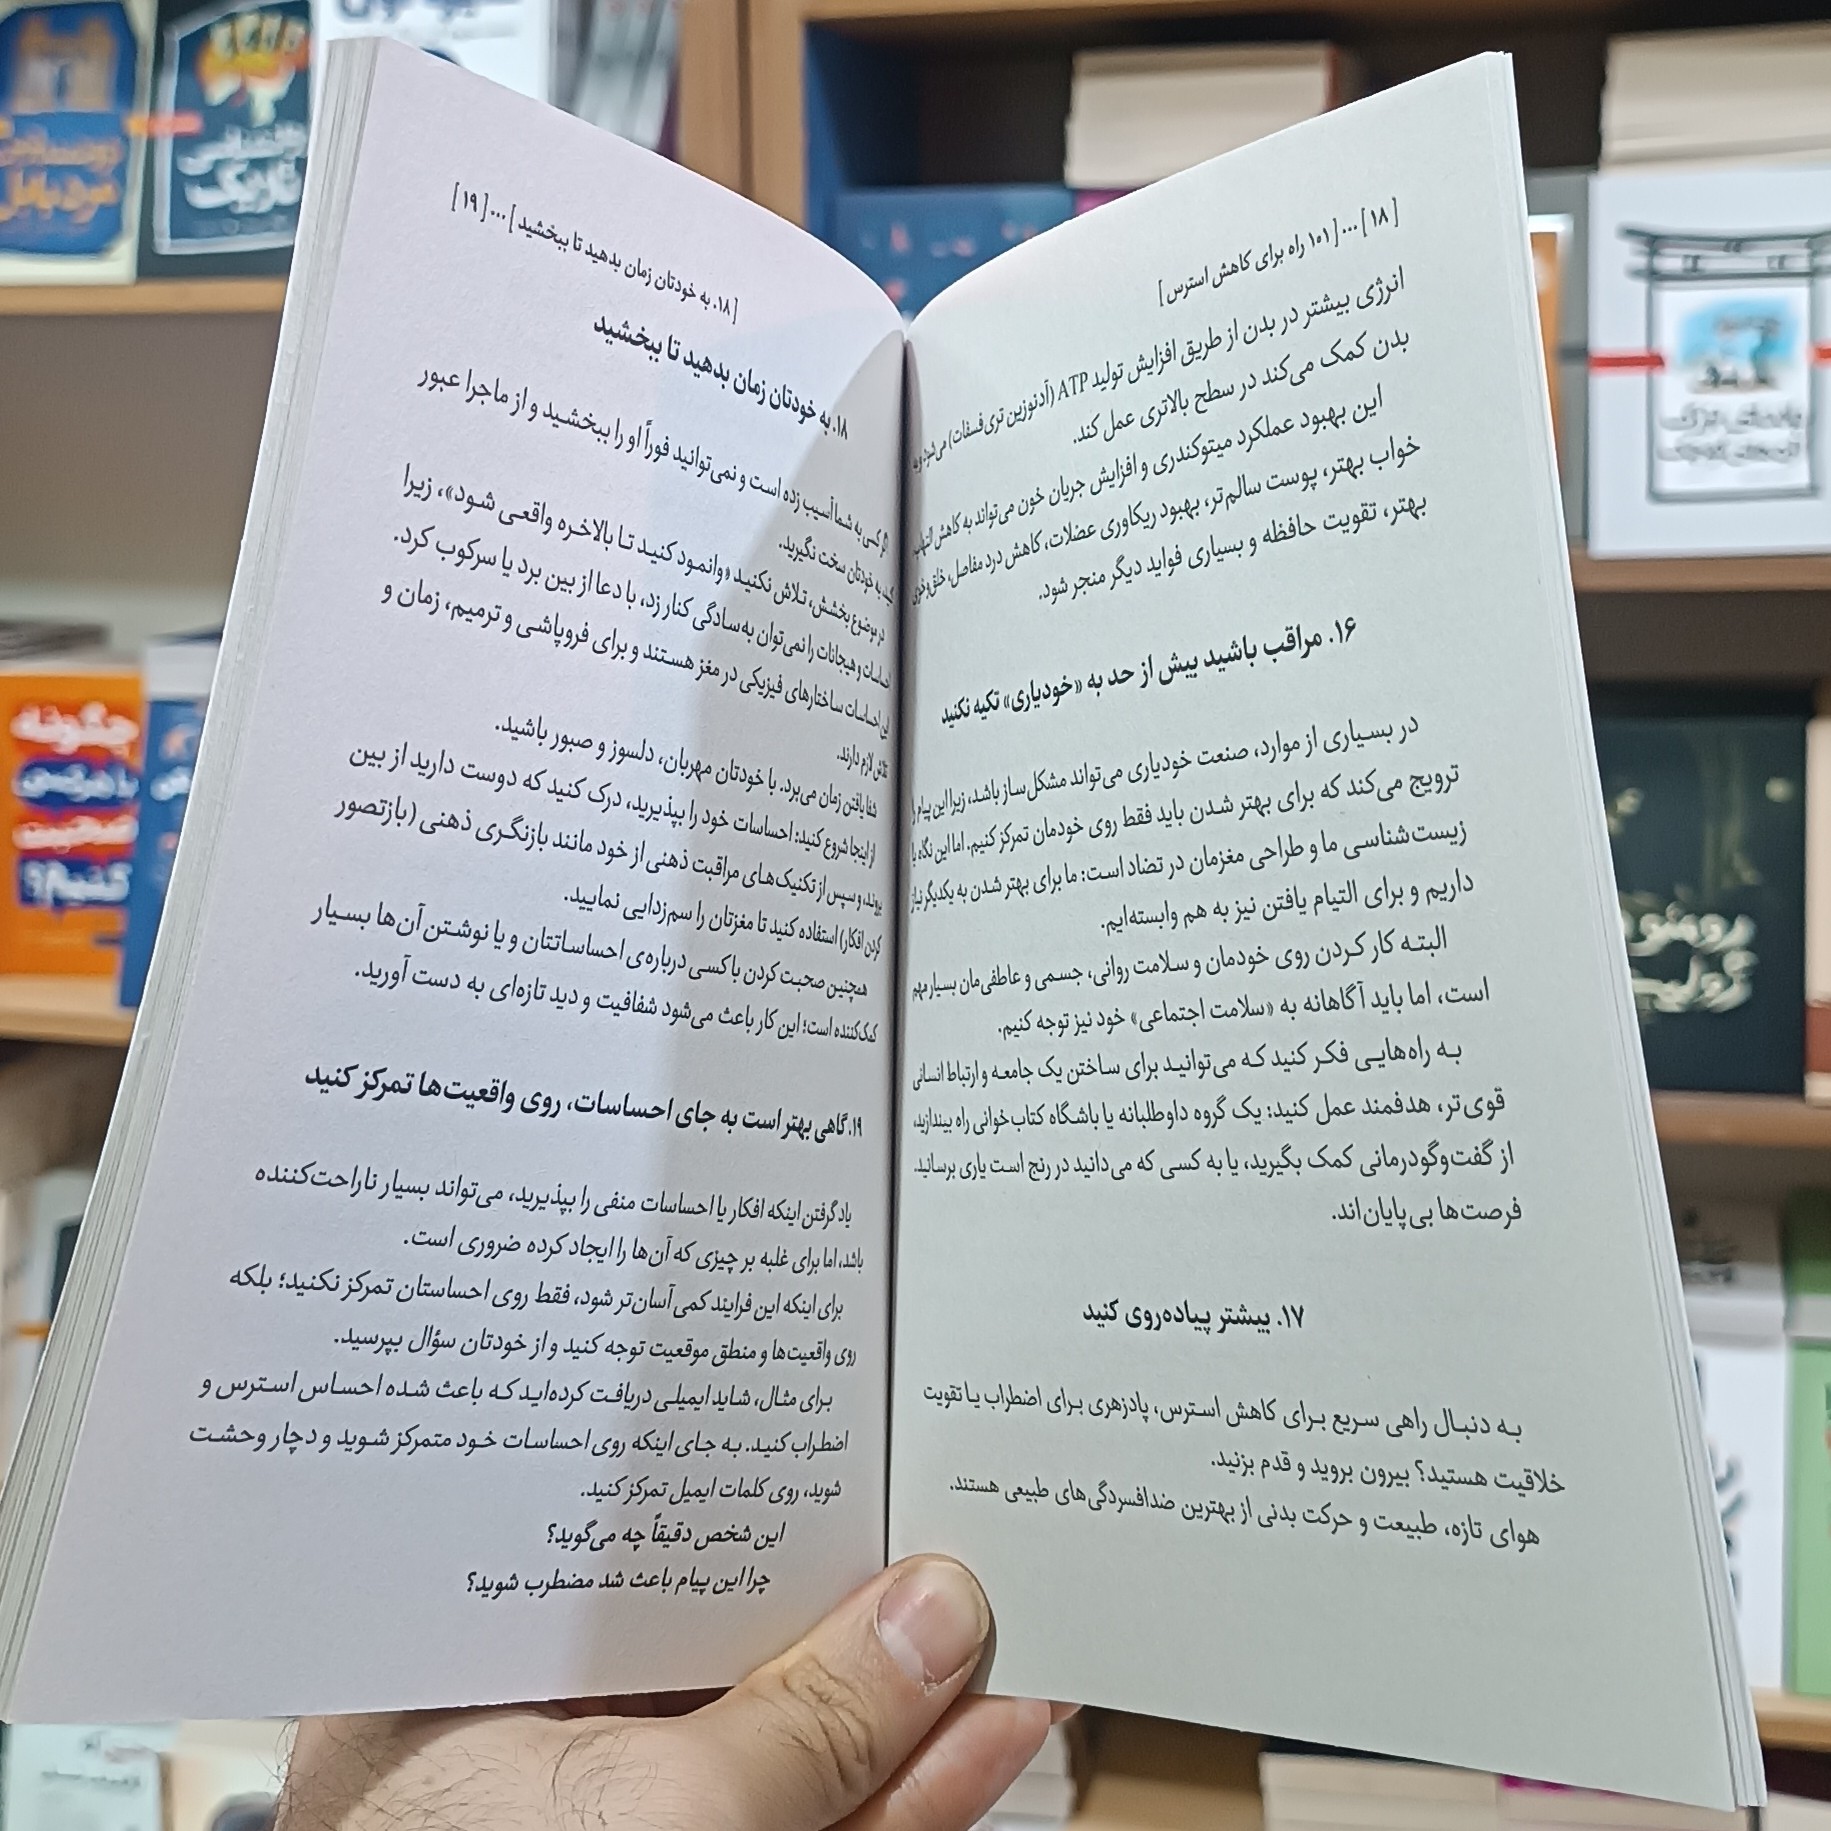 [ ۱۸ ] ... [ ۱۰۱ راه برای کاهش استرس ]
انرژی بیشتر در بدن از طریق افزایش تولید ATP (آدنوزین تری فسفات) می‌شود و به
بدن کمک می‌کند در سطح بالاتری عمل کند.
این بهبود عملکرد میتوکندری و افزایش جریان خون می‌تواند به کاهش التهاب،
خواب بهتر، پوست سالم‌تر، بهبود ریکاوری عضلات، کاهش درد مفاصل، خلق و خوی
بهتر، تقویت حافظه و بسیاری فواید دیگر منجر شود.
۱۶. مراقب باشید بیش از حد به «خودیاری» تکیه نکنید
در بسیاری از موارد، صنعت خودیاری می‌تواند مشکل‌ساز باشد، زیرا این پیام را
ترویج می‌کند که برای بهتر شدن باید فقط روی خودمان تمرکز کنیم. اما این نگاه با
زیست‌شناسی ما و طراحی مغزمان در تضاد است: ما برای بهتر شدن به یکدیگر نیاز
داریم و برای التیام یافتن نیز به هم وابسته‌ایم.
البته کار کردن روی خودمان و سلامت روانی، جسمی و عاطفی‌مان بسیار مهم
است، اما باید آگاهانه به «سلامت اجتماعی» خود نیز توجه کنیم.
به راه‌هایی فکر کنید که می‌توانید برای ساختن یک جامعه و ارتباط انسانی
قوی‌تر، هدفمند عمل کنید: یک گروه داوطلبانه یا باشگاه کتاب‌خوانی راه بیندازید،
از گفت‌وگودرمانی کمک بگیرید، یا به کسی که می‌دانید در رنج است یاری برسانید.
فرصت‌ها بی‌پایان‌اند.
۱۷. بیشتر پیاده‌روی کنید
به دنبال راهی سریع برای کاهش استرس، پادزهری برای اضطراب یا تقویت
خلاقیت هستید؟ بیرون بروید و قدم بزنید.
هوای تازه، طبیعت و حرکت بدنی از بهترین ضدافسردگی‌های طبیعی هستند.
[ ۱۸. به خودتان زمان بدهید تا ببخشید ] ... [ ۱۹ ]
۱۸. به خودتان زمان بدهید تا ببخشید
اگر کسی به شما آسیب زده است و نمی‌توانید فوراً او را ببخشید و از ماجرا عبور
کنید، به خودتان سخت نگیرید.
در موضوع بخشش، تلاش نکنید «وانمود کنید تا بالاخره واقعی شود»، زیرا
احساسات و هیجانات را نمی‌توان به‌سادگی کنار زد، با دعا از بین برد یا سرکوب کرد.
این احساسات ساختارهای فیزیکی در مغز هستند و برای فروپاشی و ترمیم، زمان و
تلاش لازم دارند.
شفا یافتن زمان می‌برد. با خودتان مهربان، دلسوز و صبور باشید.
از اینجا شروع کنید: احساسات خود را بپذیرید، درک کنید که دوست دارید از بین
بروند، و سپس از تکنیک‌های مراقبت ذهنی از خود مانند بازنگری ذهنی (بازتصور
کردن افکار) استفاده کنید تا مغزتان را سم‌زدایی نمایید.
همچنین صحبت کردن با کسی درباره‌ی احساساتتان و یا نوشتن آن‌ها بسیار
کمک‌کننده است؛ این کار باعث می‌شود شفافیت و دید تازه‌ای به دست آورید.
۱۹. گاهی بهتر است به جای احساسات، روی واقعیت‌ها تمرکز کنید
یاد گرفتن اینکه افکار یا احساسات منفی را بپذیرید، می‌تواند بسیار ناراحت‌کننده
باشد، اما برای غلبه بر چیزی که آن‌ها را ایجاد کرده ضروری است.
برای اینکه این فرایند کمی آسان‌تر شود، فقط روی احساستان تمرکز نکنید؛ بلکه
روی واقعیت‌ها و منطق موقعیت توجه کنید و از خودتان سؤال بپرسید.
برای مثال، شاید ایمیلی دریافت کرده‌اید که باعث شده احساس استرس و
اضطراب کنید. به جای اینکه روی احساسات خود متمرکز شوید و دچار وحشت
شوید، روی کلمات ایمیل تمرکز کنید.
این شخص دقیقاً چه می‌گوید؟
چرا این پیام باعث شد مضطرب شوید؟
چگونه
کنیم؟
تاریک
مرد بابل